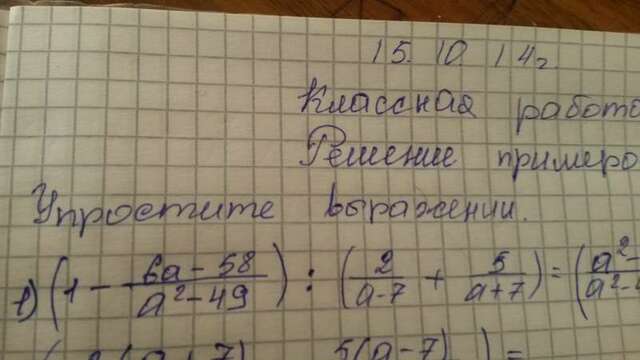 15. 10. 14г.
Классная работа
Решение примеро
Упростите выражении.
1) (1 - (6a - 58)/(a² - 49)) : (2/(a-7) + 5/(a+7)) = (a² -
5(a-7)) =